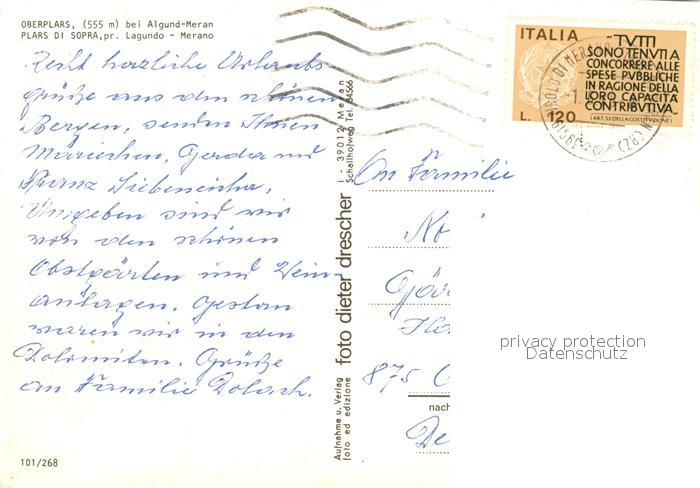 OBERPLARS, (555 m) bei Algund-Meran
PLARS DI SOPRA, pr. Lagundo - Merano
Recht herzliche Urlaubs-
grüße aus den schönen
Bergen, senden Ihnen
Mariechen, Gerda und
Franz Siebeneicha,
Umgeben sind wir
von den schönen
Obstgärten und Wein-
anlagen. Gestern
waren wir in den
Dolomiten. Grüße
an Familie
101/268
Aufnahme u. Verlag
foto ed edizione
foto dieter drescher
I - 39012 Meran
Schallhofweg Tel. 34566
ITALIA
"TVTTI
SONO TENVTI A
CONCORRERE ALLE
SPESE PVBBLICHE
IN RAGIONE DELLA
LORO CAPACITÀ
CONTRIBVTIVA"
(ART. 53 DELLA COSTITVZIONE)
L. 120
An Familie
No
875
nach
De
privacy protection
Datenschutz